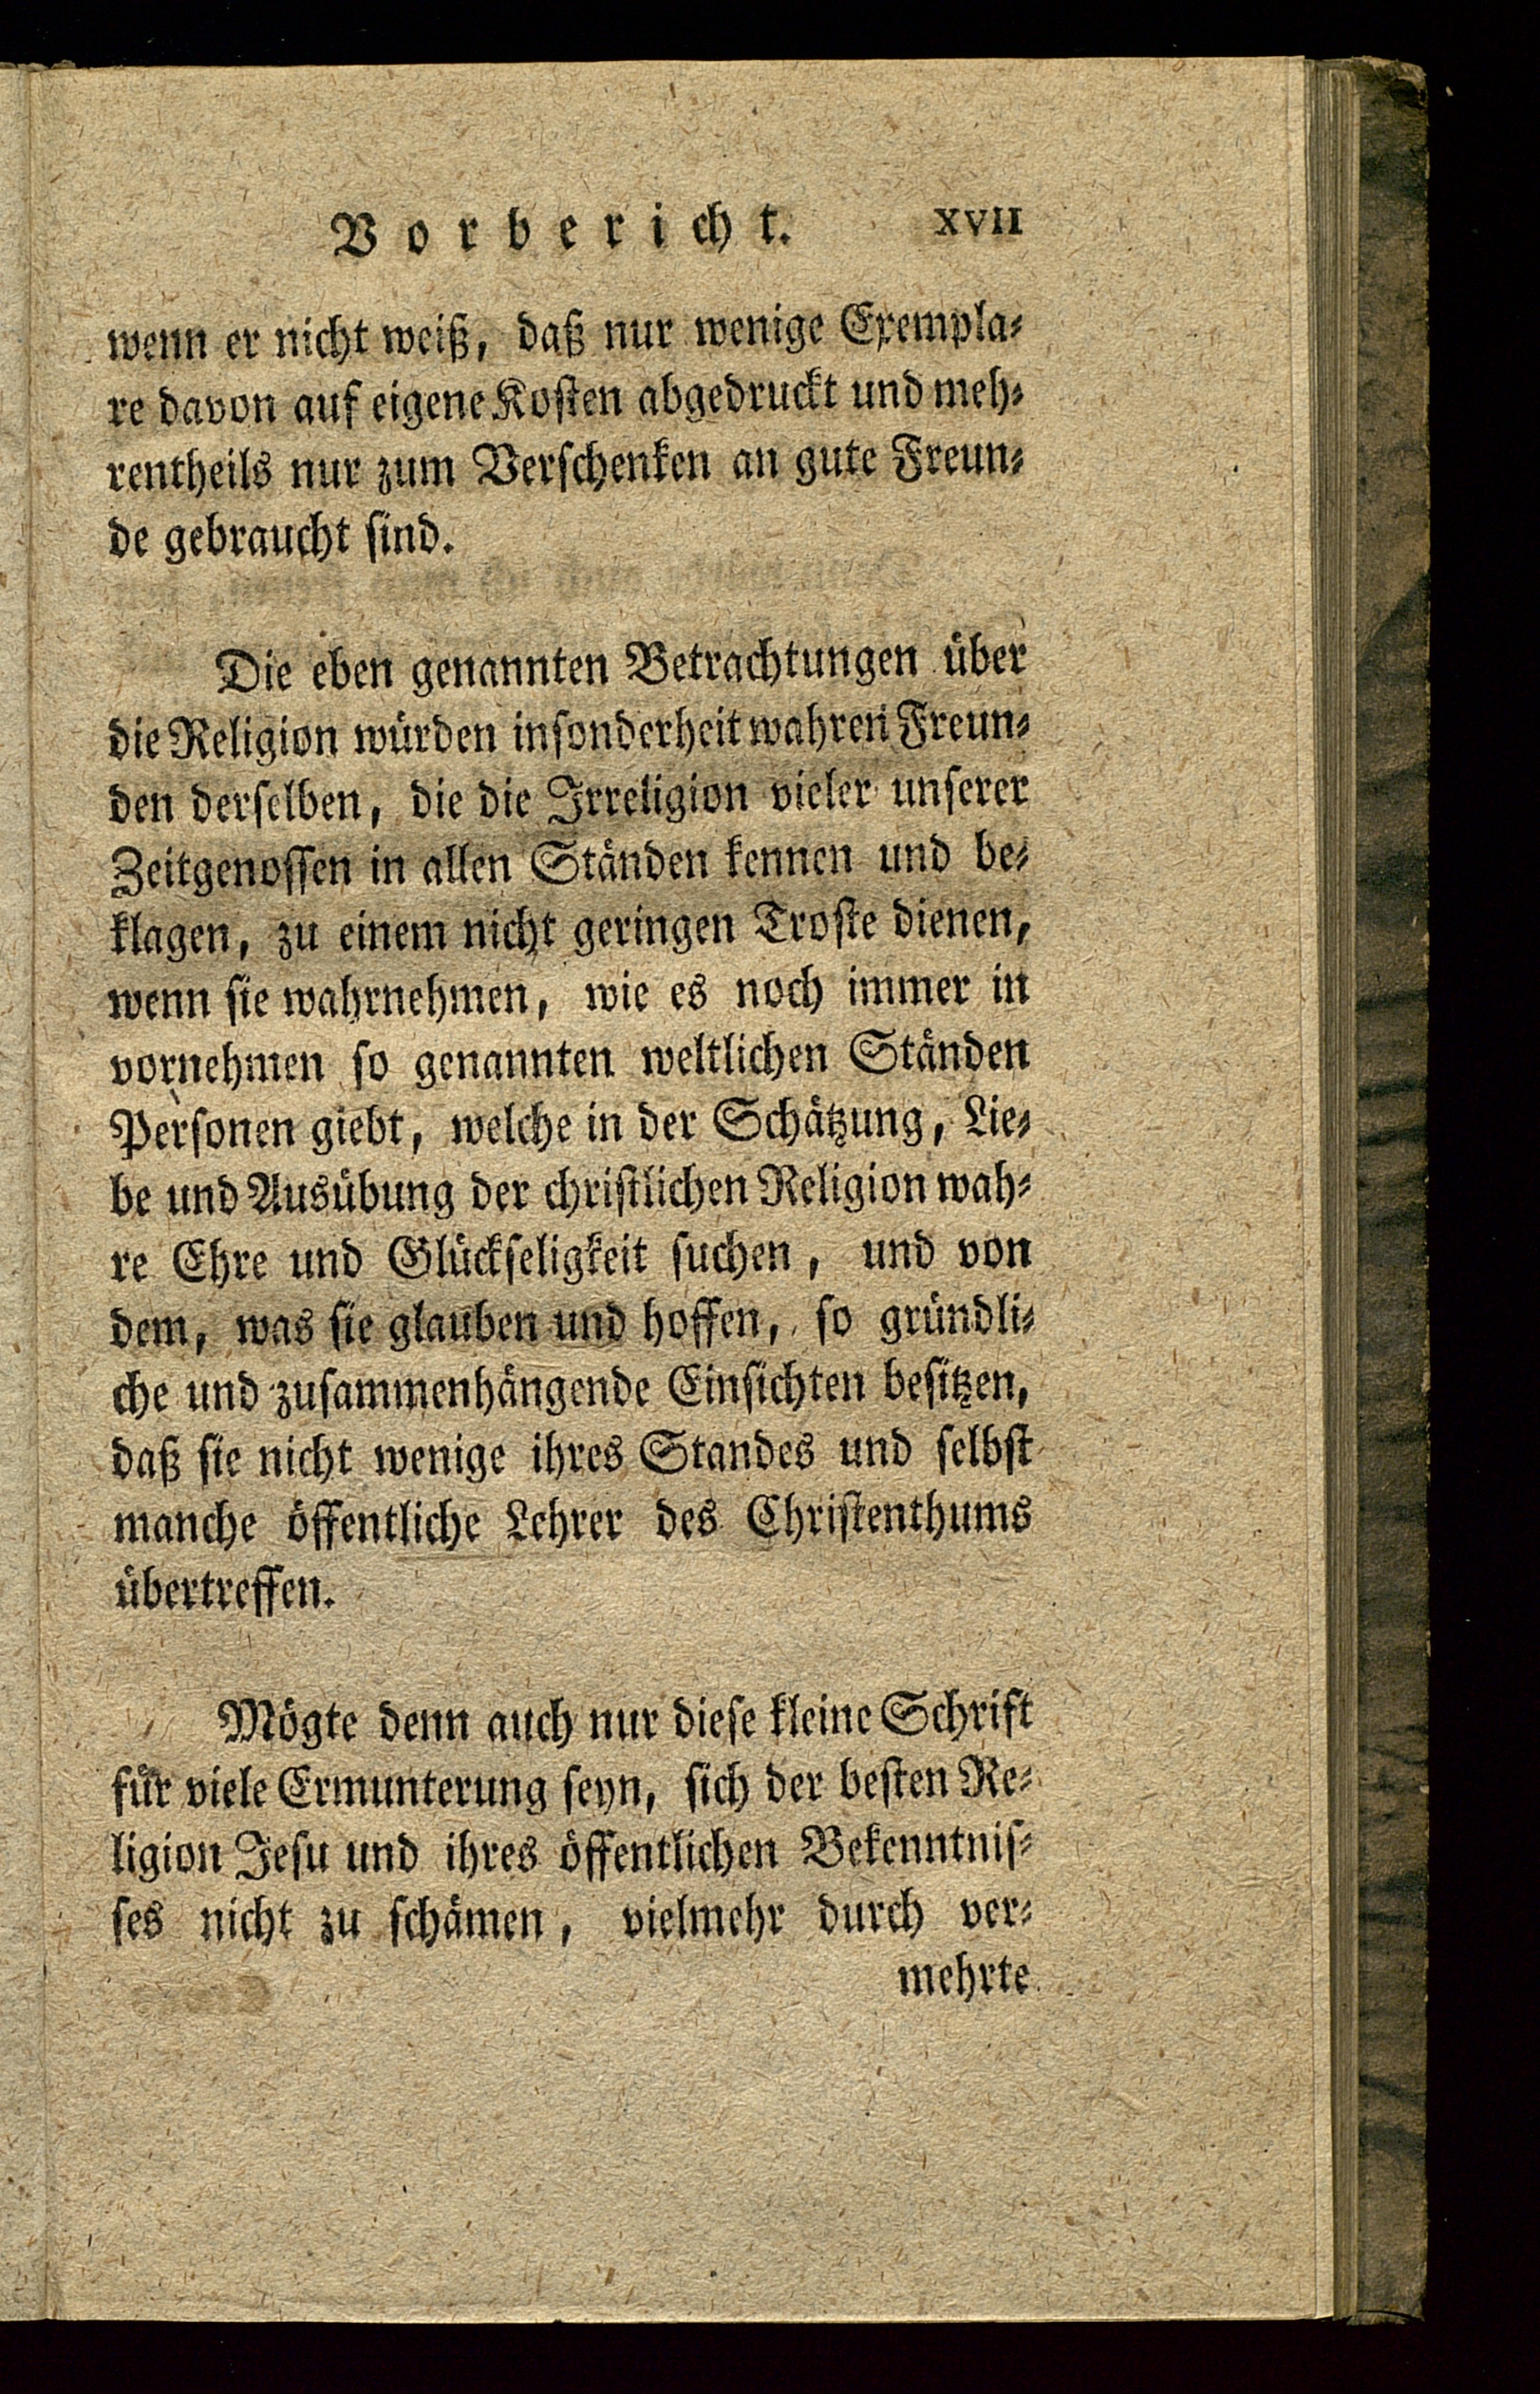 Vorbericht. XVII
wenn er nicht weiß, daß nur wenige Exempla-
re davon auf eigene Kosten abgedruckt und meh-
rentheils nur zum Verschenken an gute Freun-
de gebraucht sind.
Die eben genannten Betrachtungen über
die Religion würden insonderheit wahren Freun-
den derselben, die die Irreligion vieler unserer
Zeitgenossen in allen Ständen kennen und be-
klagen, zu einem nicht geringen Troste dienen,
wenn sie wahrnehmen, wie es noch immer in
vornehmen so genannten weltlichen Ständen
Personen giebt, welche in der Schätzung, Lie-
be und Ausübung der christlichen Religion wah-
re Ehre und Glückseligkeit suchen, und von
dem, was sie glauben und hoffen, so gründli-
che und zusammenhängende Einsichten besitzen,
daß sie nicht wenige ihres Standes und selbst
manche öffentliche Lehrer des Christenthums
übertreffen.
Mögte denn auch nur diese kleine Schrift
für viele Ermunterung seyn, sich der besten Re-
ligion Jesu und ihres öffentlichen Bekenntnis-
ses nicht zu schämen, vielmehr durch ver-
mehrte